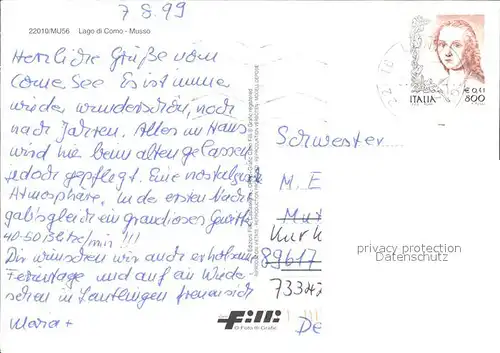 7 8.99
22010/MU56 Lago di Como - Musso
Herzliche Grüße vom
Comer See Es ist immer
wieder wunderschön, noch
nach Jahren. Alles im Haus
wird hier beim alten gelassen
jedoch gepflegt. Eine nostalgische
Atmosphäre. In der ersten Nacht
gab's gleich ein grandioses Gewitter
40-50 Blitze/min !!!
Dir wünschen wir auch erholsame
Ferientage und auf ein Wieder-
sehen in Lautlingen freuen sich
Maria +
ITALIA
€ 0,41
800
Schwester
M. E
Mut
Kurk
89617
De
privacy protection
Datenschutz
Filli